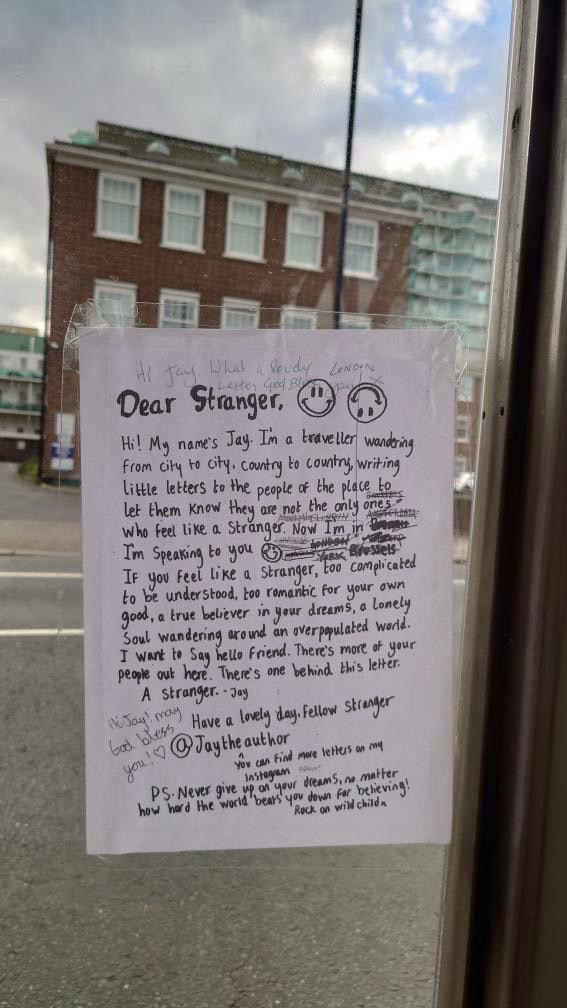 Hi Jay. What a lovely
Letter God Bless you x
LONDON
Dear Stranger,
Hi! My name's Jay. I'm a traveller wandering
from city to city, country to country, writing
little letters to the people of the place to
let them know they are not the only ones
who feel like a Stranger. Now I'm in
LONDON YORK Brussels
I'm speaking to you
If you feel like a Stranger, too complicated
to be understood, too romantic for your own
good, a true believer in your dreams, a lonely
Soul wandering around an overpopulated world.
I want to Say hello friend. There's more of your
people out here. There's one behind this letter.
A stranger. - Jay
Hi Jay! may
God bless
you! ♡
Have a lovely day, fellow Stranger
@Jaytheauthor
You can find more letters on my
Instagram Wow!
PS. Never give up on your dreams, no matter
how hard the world beats you down for believing!
Rock on wild child x